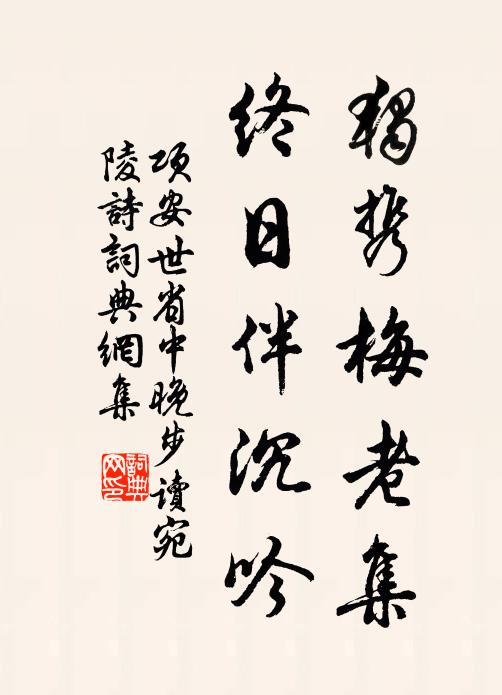 獨携梅老集
終日伴沉吟
項安世省中晚步讀宛
陵詩詞典網集
詞典網印